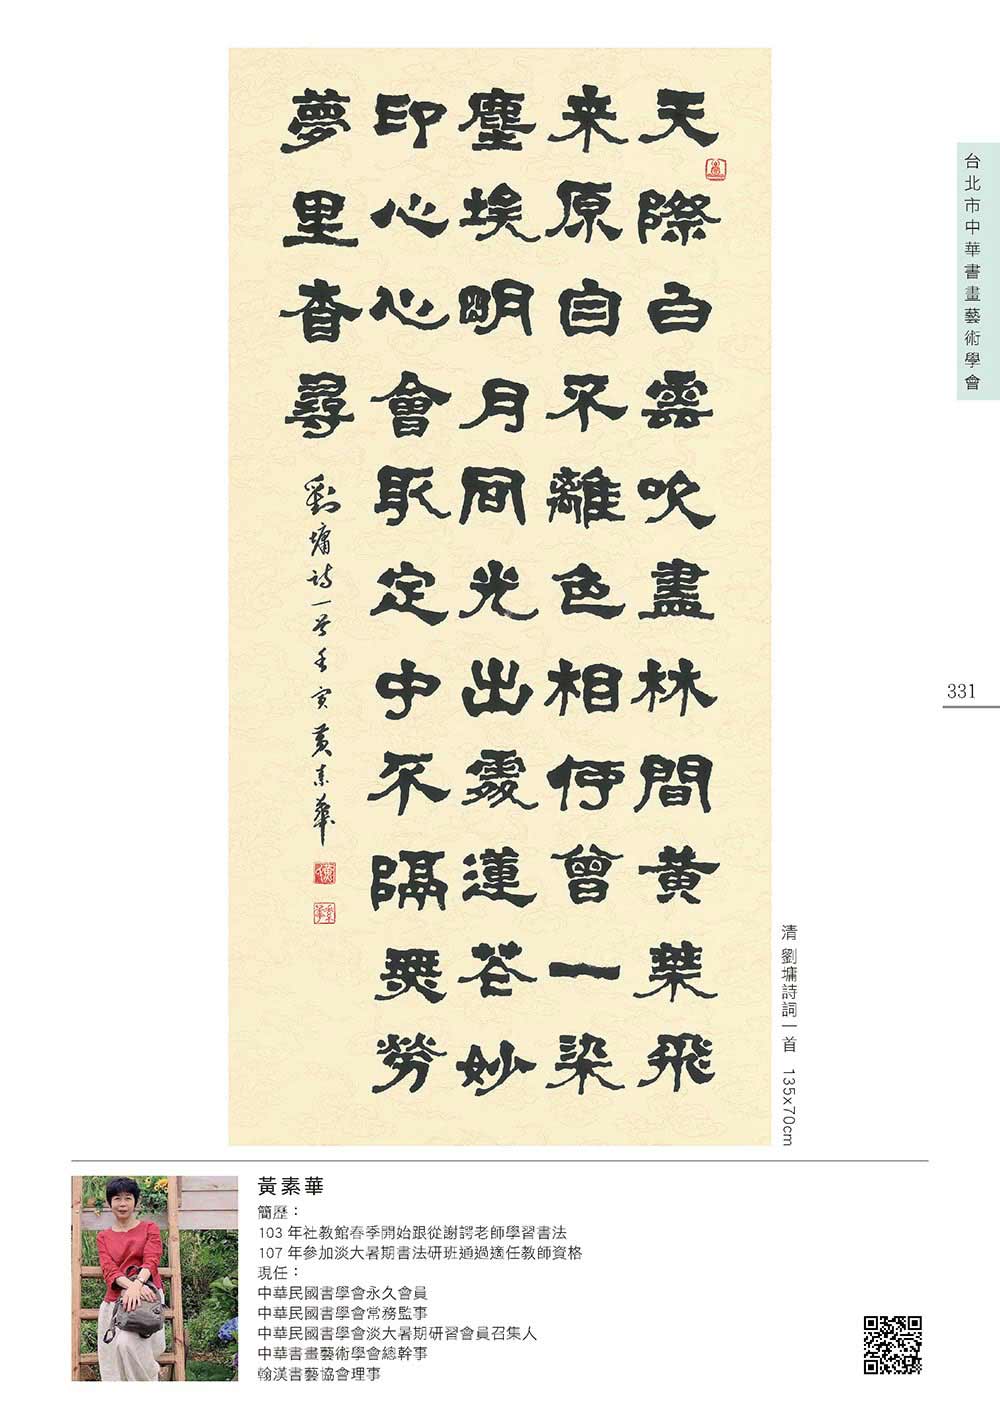 天際白雲吹盡林間黃葉飛
来原自不離色相何曾一染
塵埃明月同光出處蓮花妙
印心心會取定中不隔無勞
夢里杳尋
劉墉詩一首壬寅黃素華
素華
台北市中華書畫藝術學會
331
清 劉墉詩詞一首 135x70cm
黃素華
簡歷：
103 年社教館春季開始跟從謝諤老師學習書法
107 年參加淡大暑期書法研班通過適任教師資格
現任：
中華民國書學會永久會員
中華民國書學會常務監事
中華民國書學會淡大暑期研習會員召集人
中華書畫藝術學會總幹事
翰漢書藝協會理事